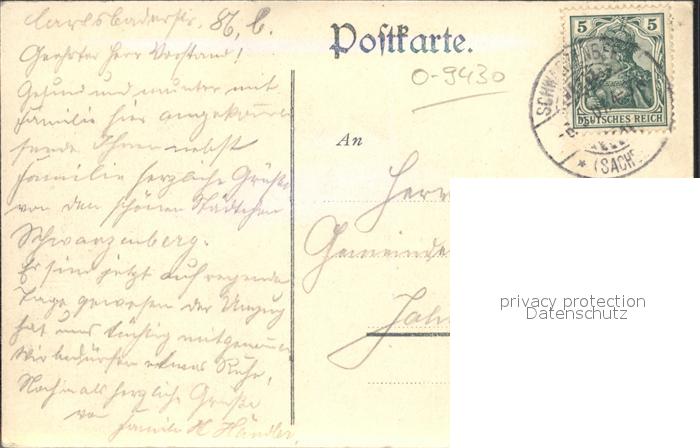 Carlsbaderstr. 86, b.
Geehrter Herr Vorstand!
Gesund und munter mit
Familie hier angekommen
sende Ihnen nebst
Familie herzliche Grüße
von den schönen Städtchen
Schwarzenberg.
Es sind jetzt aufregende
Tage gewesen der Umzug
hat uns tüchtig mitgenommen
wir bedürfen etwas Ruhe,
Nochmals herzliche Grüße
von
Familie H Händler.
Postkarte.
O-9430
5 5
DEUTSCHES REICH
SCHWARZENBERG
* (SACHS
An
Herrn
Gemeinde
privacy protection
Datenschutz